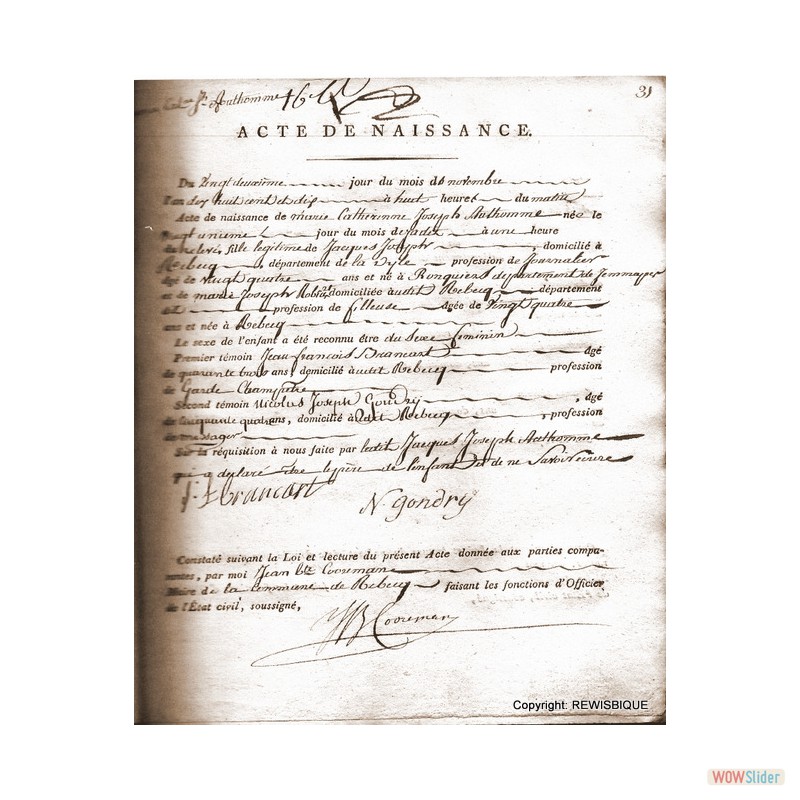 Authomme
31
ACTE DE NAISSANCE.
Du vingt deuxième jour du mois de novembre
l'an dix huit cent et dix à huit heures du matin
Acte de naissance de marie Catherinne Joseph Authomme née le
vingt unieme jour du mois à une heure
fille legitime de Jacques Joseph , domicilié à
Rebecq , département de la Dyle profession de Journalier
âgé de vingt quatre ans et né à Ronquiers département de Jemmappes
et de marie Joseph domiciliée audit Rebecq département
profession de fileuse âgée de vingt quatre
ans et née à Rebecq
Le sexe de l'enfant a été reconnu être du Sexe feminin
Premier témoin Jean francois Brancart âgé
de quarante trois ans, domicilié à audit Rebecq profession
de Garde Champetre
Second témoin Nicolas Joseph Gondry , âgé
de cinquante quatre ans, domicilié à audit Rebecq , profession
de messager
Sur la réquisition à nous faite par ledit Jacques Joseph Authomme
qui a declaré être le père de l'enfant et de ne Savoir ecrire
J. F Brancart
N. gondry
Constaté suivant la Loi et lecture du présent Acte donnée aux parties compa-
rantes, par moi Jean bte Cooremans
Maire de la commune de Rebecq faisant les fonctions d'Officier
de l'État civil, soussigné,
JB Cooremans
Copyright: REWISBIQUE
WOWSlider